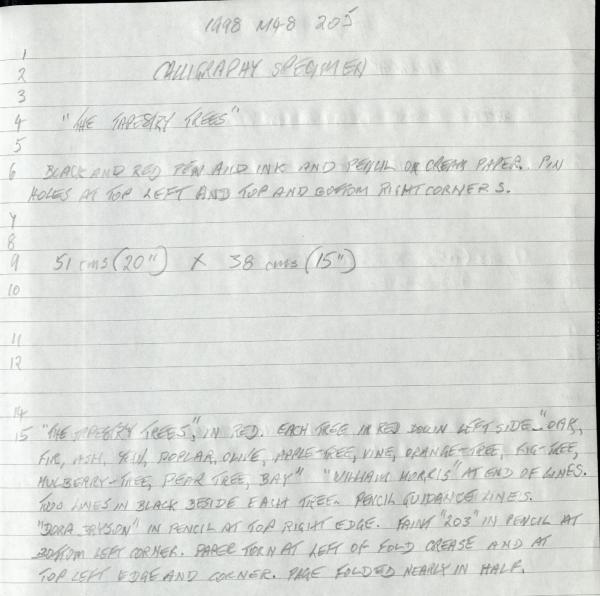 1998 M48 205
1
2 CALLIGRAPHY SPECIMEN
3
4 "THE TAPESTRY TREES"
5
6 BLACK AND RED PEN AND INK AND PENCIL ON CREAM PAPER. PIN
HOLES AT TOP LEFT AND TOP AND BOTTOM RIGHT CORNERS.
7
8
9 51 cms (20") X 38 cms (15")
10
11
12
14
15 "THE TAPESTRY TREES", IN RED. EACH TREE IN RED DOWN LEFT SIDE - "OAK,
FIR, ASH, YEW, POPLAR, OLIVE, APPLE-TREE, VINE, ORANGE-TREE, FIG-TREE,
MULBERRY-TREE, PEAR TREE, BAY" "WILLIAM MORRIS" AT END OF LINES.
TWO LINES IN BLACK BESIDE EACH TREE. PENCIL GUIDANCE LINES.
"DORA BRYSON" IN PENCIL AT TOP RIGHT EDGE. FAINT "203" IN PENCIL AT
BOTTOM LEFT CORNER. PAPER TORN AT LEFT OF FOLD CREASE AND AT
TOP LEFT EDGE AND CORNER. PAGE FOLDED NEARLY IN HALF.